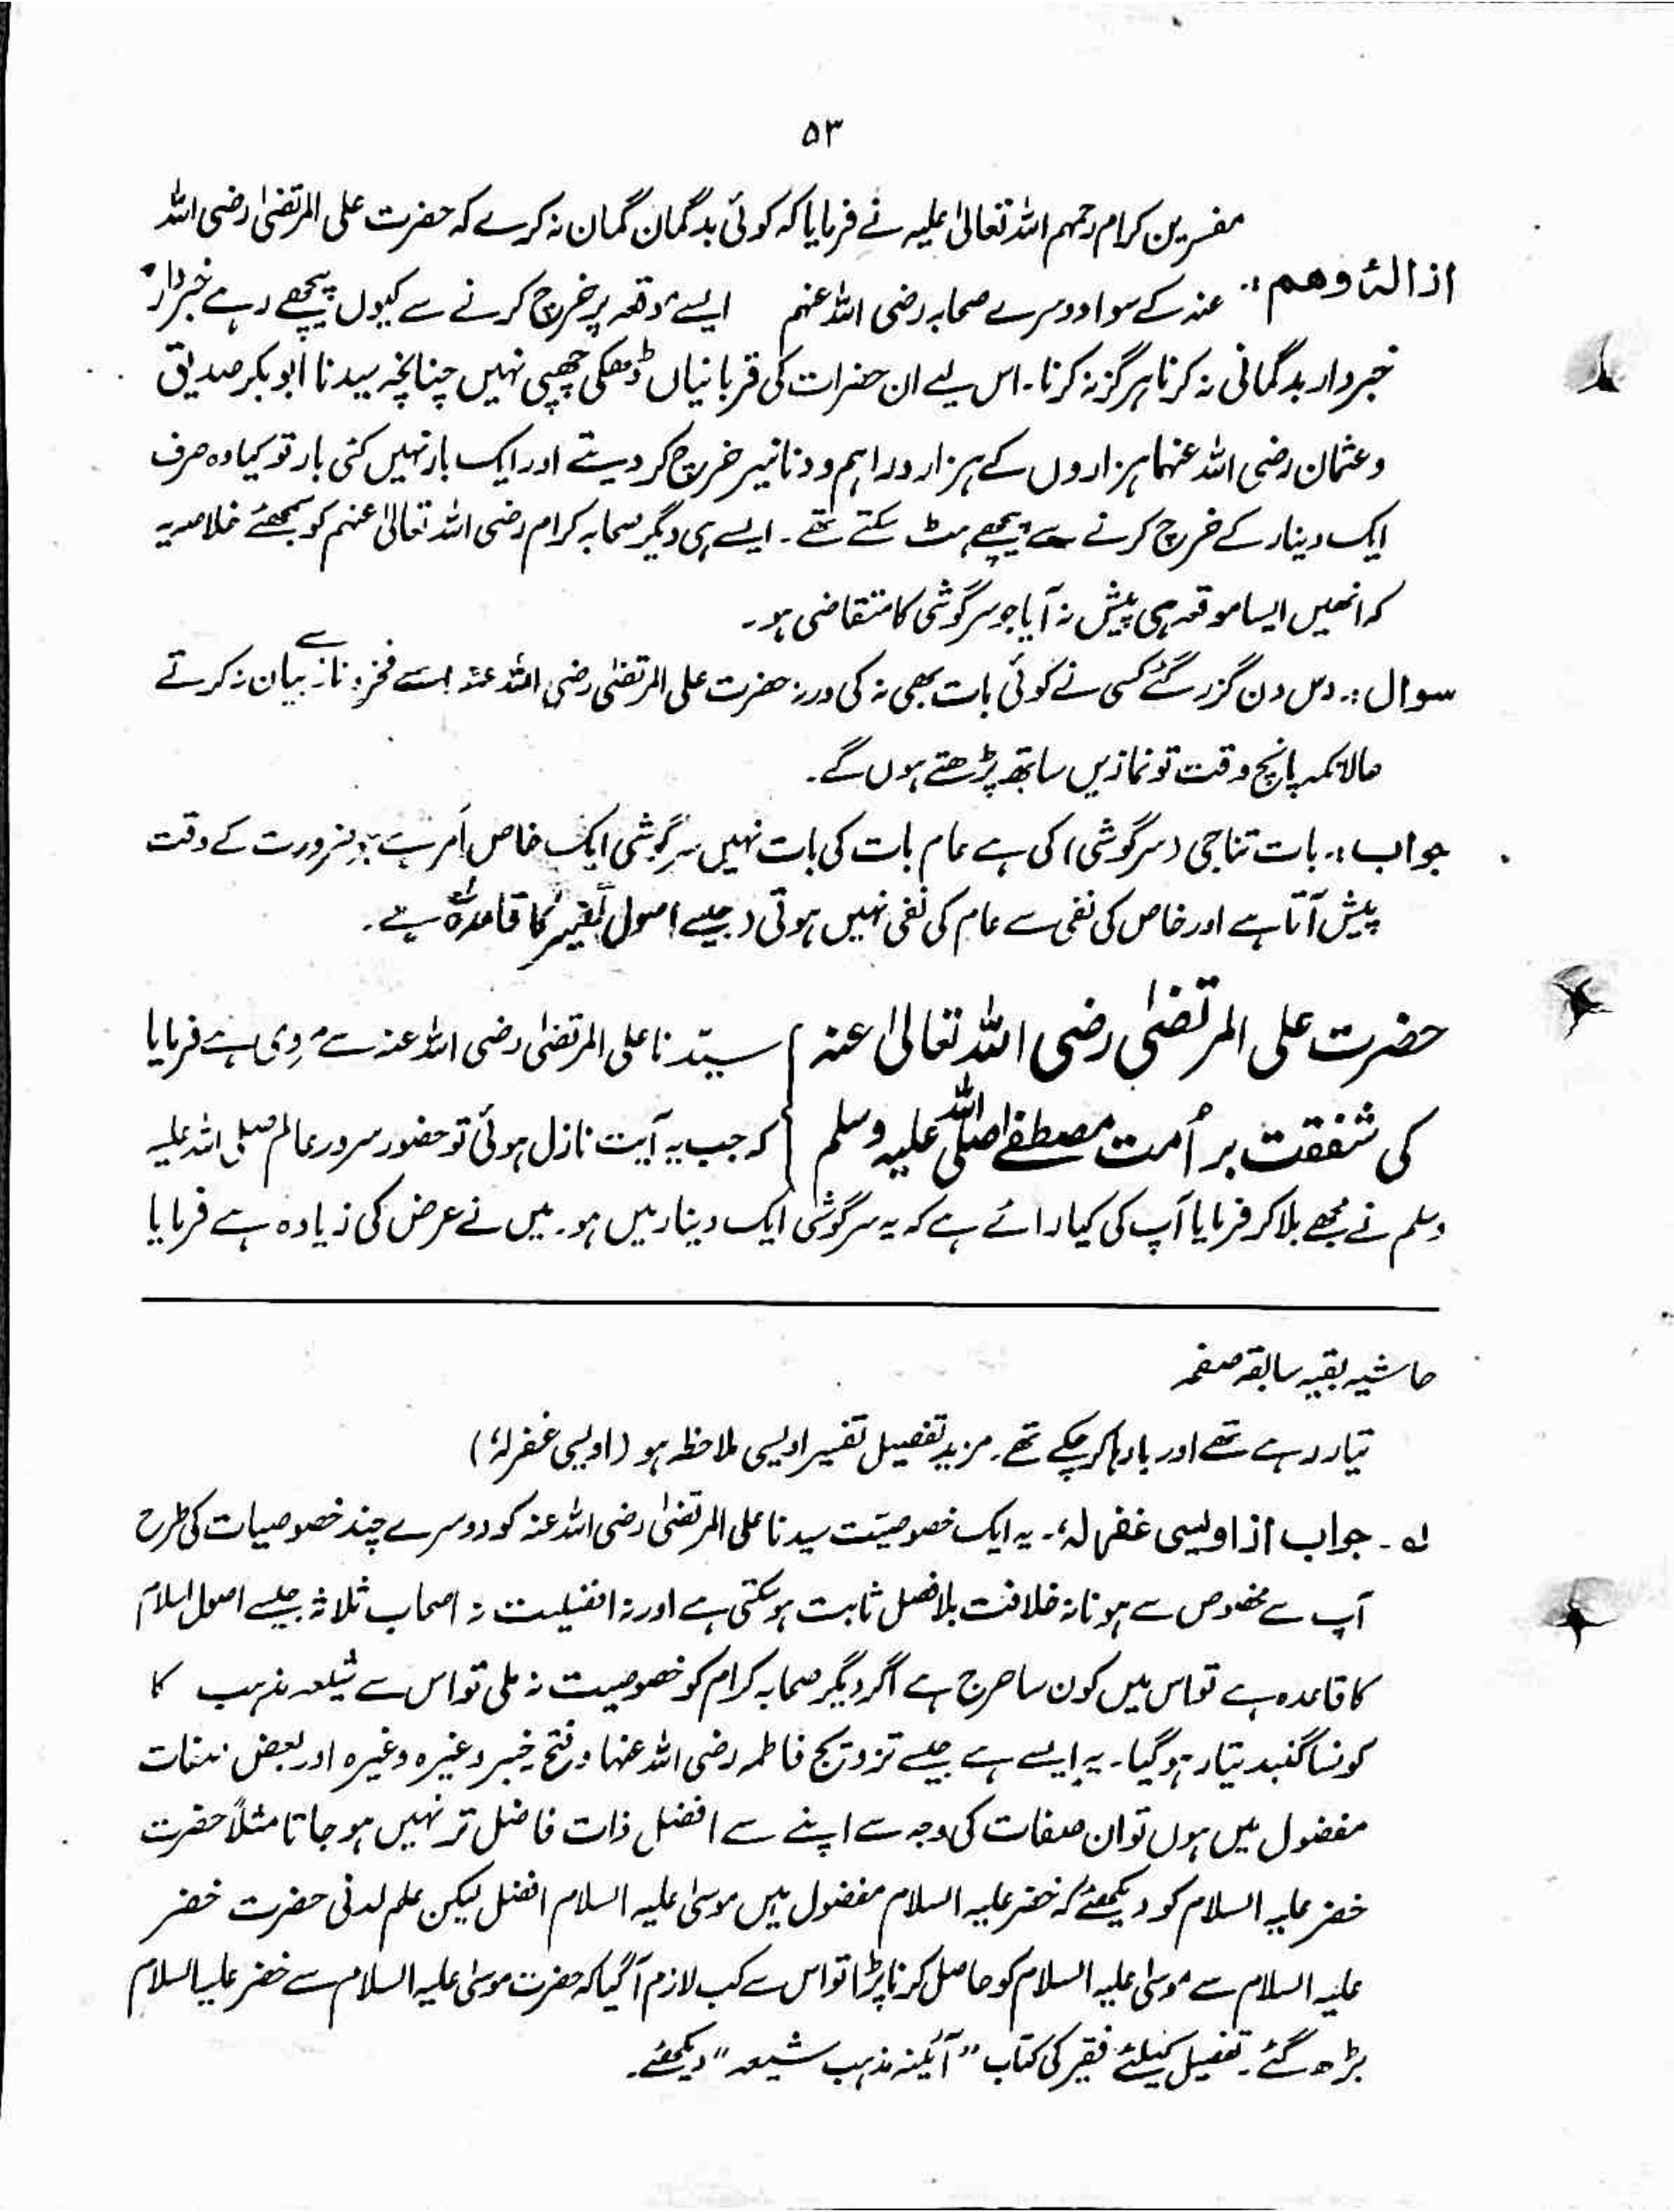 ۵۳
مفسرین کرام رحمہم اللہ تعالیٰ علیہ نے فرمایا کہ کوئی بدگمان گمان نہ کرے کہ حضرت علی المرتضیٰ رضی اللہ
ازالۂ وھم :۔ عنہ کے سوا دوسرے صحابہ رضی اللہ عنہم ایسے موقعہ پر خرچ کرنے سے کیوں پیچھے رہے خبردار
خبردار بدگمانی نہ کرنا ہرگز نہ کرنا۔ اس لیے ان حضرات کی قربانیاں ڈھکی چھپی نہیں چنانچہ سیدنا ابوبکر صدیق
و عثمان رضی اللہ عنہما ہزاروں کے ہزار دراہم و دنانیر خرچ کر دیتے اور ایک بار نہیں کئی بار تو کیا وہ صرف
ایک دینار کے خرچ کرنے سے پیچھے ہٹ سکتے تھے۔ ایسے ہی دیگر صحابہ کرام رضی اللہ تعالیٰ عنہم کو سمجھئے خلاصہ یہ
کہ انھیں ایسا موقعہ ہی پیش نہ آیا جو سرگوشی کا متقاضی ہو۔
سوال :۔ دس دن گزر گئے کسی نے کوئی بات بھی نہ کی ورنہ حضرت علی المرتضیٰ رضی اللہ عنہ اسے فخر و ناز سے بیان نہ کرتے
حالانکہ پانچ وقت تو نمازیں ساتھ پڑھتے ہوں گے۔
جواب :۔ بات تناجی (سرگوشی) کی ہے عام بات کی بات نہیں سرگوشی ایک خاص اَمر ہے جو ضرورت کے وقت
پیش آتا ہے اور خاص کی نفی سے عام کی نفی نہیں ہوتی (جیسے اصول تفسیر کا قاعدہ لہ ہے۔
حضرت علی المرتضیٰ رضی اللہ تعالیٰ عنہ } سیّدنا علی المرتضیٰ رضی اللہ عنہ سے مروی ہے فرمایا
کی شفقت بر اُمت مصطفےٰ صلی اللہ علیہ وسلم } کہ جب یہ آیت نازل ہوئی تو حضور سرور عالم صلی اللہ علیہ
وسلم نے مجھے بلا کر فرمایا آپ کی کیا رائے ہے کہ یہ سرگوشی ایک دینار میں ہو۔ میں نے عرض کی زیادہ ہے فرمایا
حاشیہ بقیہ سابقہ صفحہ
تیار رہے تھے اور بارہا کر چکے تھے۔ مزید تفصیل تفسیر اویسی ملاحظہ ہو (اویسی غفرلہٗ)
لہ ۔ جواب از اویسی غفرلہٗ ۔ یہ ایک خصوصیّت سیدنا علی المرتضیٰ رضی اللہ عنہ کو دوسرے چند خصوصیات کی طرح
آپ سے مخصوص سے ہونا نہ خلافت بلا فصل ثابت ہو سکتی ہے اور نہ افضلیت نہ اصحاب ثلاثہ جیسے اصول اسلام
کا قاعدہ ہے تو اس میں کون سا حرج ہے اگر دیگر صحابہ کرام کو خصوصیت نہ ملی تو اس سے شیعہ مذہب کا
کونسا گنبد تیار ہو گیا۔ یہ ایسے ہے جیسے تزویج فاطمہ رضی اللہ عنہا و فتح خیبر وغیرہ وغیرہ اور بعض صفات
مفضول میں ہوں تو ان صفات کی وجہ سے اپنے سے افضل ذات فاضل تر نہیں ہو جاتا مثلاً حضرت
خضر علیہ السلام کو دیکھئے کہ خضر علیہ السلام مفضول ہیں موسیٰ علیہ السلام افضل لیکن علم لدنی حضرت خضر
علیہ السلام سے موسیٰ علیہ السلام کو حاصل کرنا پڑا تو اس سے کب لازم آ گیا کہ حضرت موسیٰ علیہ السلام سے خضر علیہ السلام
بڑھ گئے۔ تفصیل کیلئے فقیر کی کتاب "آئینہ مذہب شیعہ" دیکھئے۔